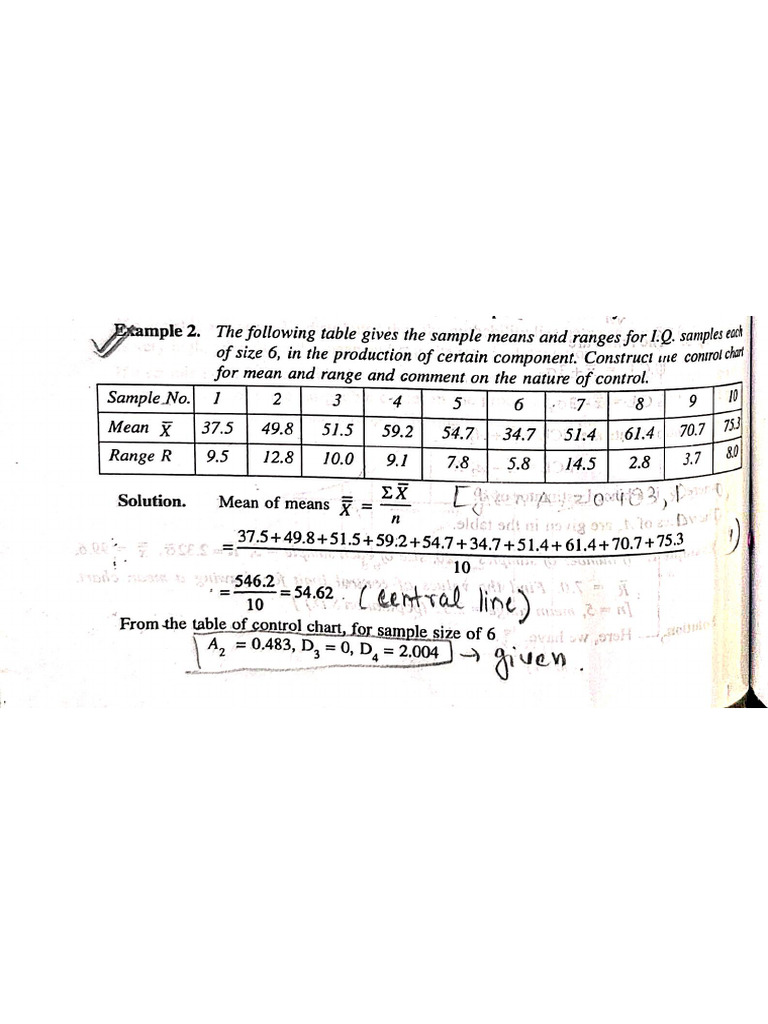 Example 2. The following table gives the sample means and ranges for I.Q. samples each
of size 6, in the production of certain component. Construct the control chart
for mean and range and comment on the nature of control.
Sample No. 1 2 3 4 5 6 7 8 9 10
Mean X̅ 37.5 49.8 51.5 59.2 54.7 34.7 51.4 61.4 70.7 75.3
Range R 9.5 12.8 10.0 9.1 7.8 5.8 14.5 2.8 3.7 8.0
Solution. Mean of means X̿ = ΣX̅ / n
= 37.5+49.8+51.5+59.2+54.7+34.7+51.4+61.4+70.7+75.3 / 10
= 546.2 / 10 = 54.62. (central line)
From the table of control chart, for sample size of 6
A₂ = 0.483, D₃ = 0, D₄ = 2.004 → given.